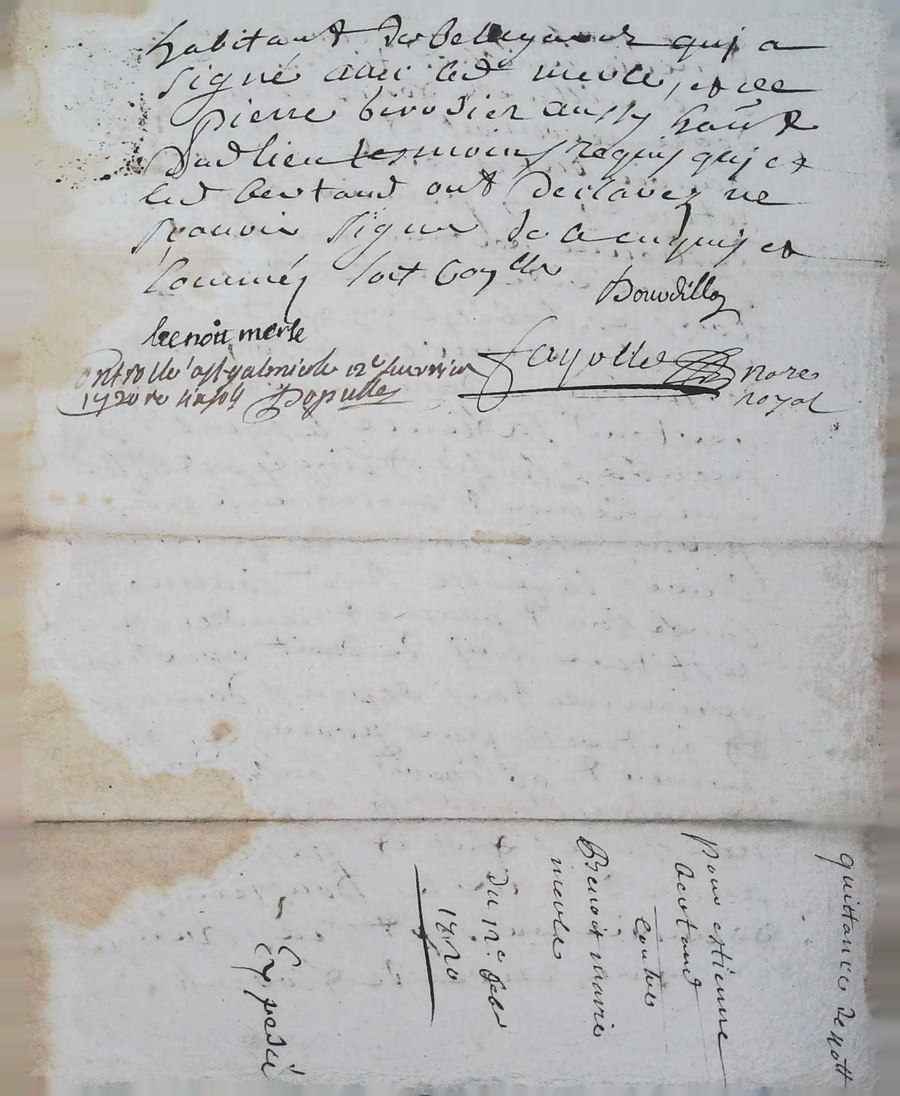 habitant de qui a
signé avec led merle, et de
Pierre brosier aussy habt
dud lieu tesmoins requis qui et
led bertand ont declarez ne
scavoir signe de ce enquis et
sommés soit
Bourdillon
benoit merle
Controllé a st galmier le 12e feuvrier
1720 re
Populle
Fayolle nore
royal
quittance de
Pour estienne
bertand
contre
Benoit marie
merle
du 12e feb
1720
Expedié